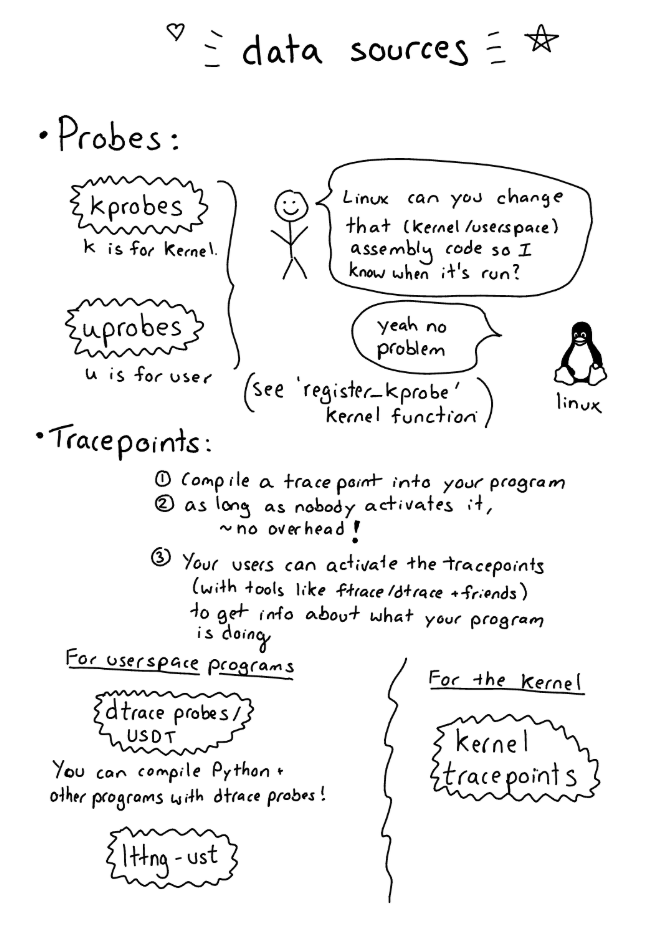 data sources
• Probes:
kprobes
k is for kernel.
uprobes
u is for user
Linux can you change
that (kernel/userspace)
assembly code so I
know when it's run?
yeah no
problem
linux
(see 'register_kprobe'
kernel function)
• Tracepoints:
① Compile a tracepoint into your program
② as long as nobody activates it,
~no overhead!
③ Your users can activate the tracepoints
(with tools like ftrace/dtrace + friends)
to get info about what your program
is doing
For userspace programs
dtrace probes/
USDT
You can compile Python +
other programs with dtrace probes!
lttng-ust
For the kernel
kernel
tracepoints